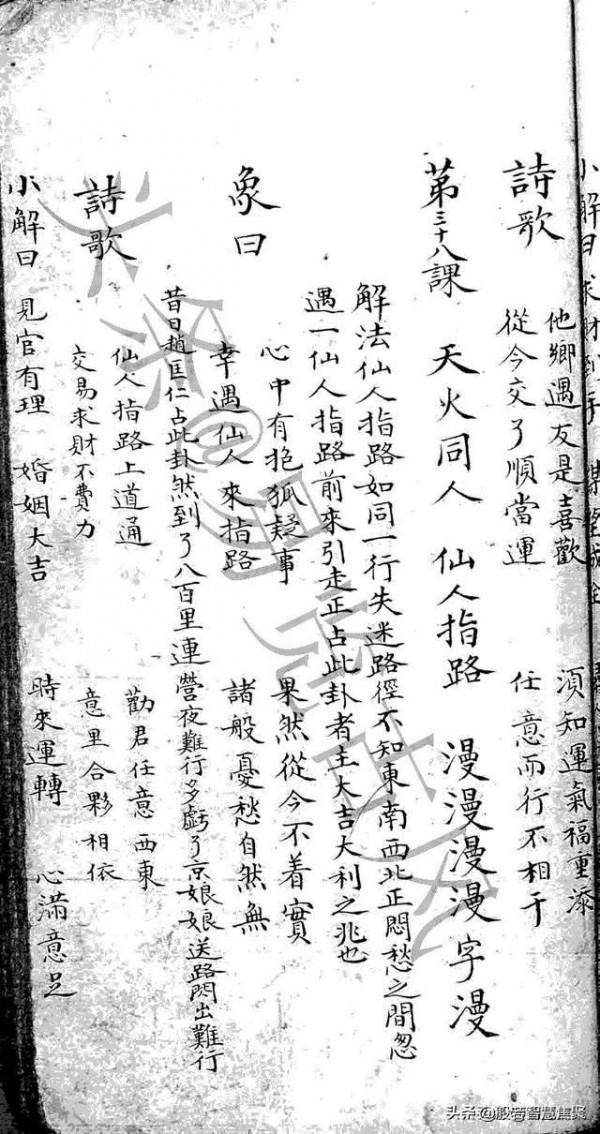 小解曰 求財到手
詩歌
他鄉遇友是喜歡 須知運氣福重添
從今交了順當運 任意而行不相干
第三十八課 天火同人 仙人指路 漫漫漫漫字漫
解法仙人指路如同一行失迷路徑不知東南西北正悶愁之間忽
遇一仙人指路前來引走正占此卦者主大吉大利之兆也
象曰
心中有抱狐疑事 果然從今不着實
幸遇仙人來指路 諸般憂愁自然無
昔日趙匡仁占此卦然到了八百里連營夜難行多虧了京娘娘送路閃出難行
詩歌
仙人指路上道通 勸君任意西東
交易求財不費力 意里合夥相依
小解曰 見官有理 婚姻大吉 時來運轉 心滿意足
头条@般若智慧焦聚